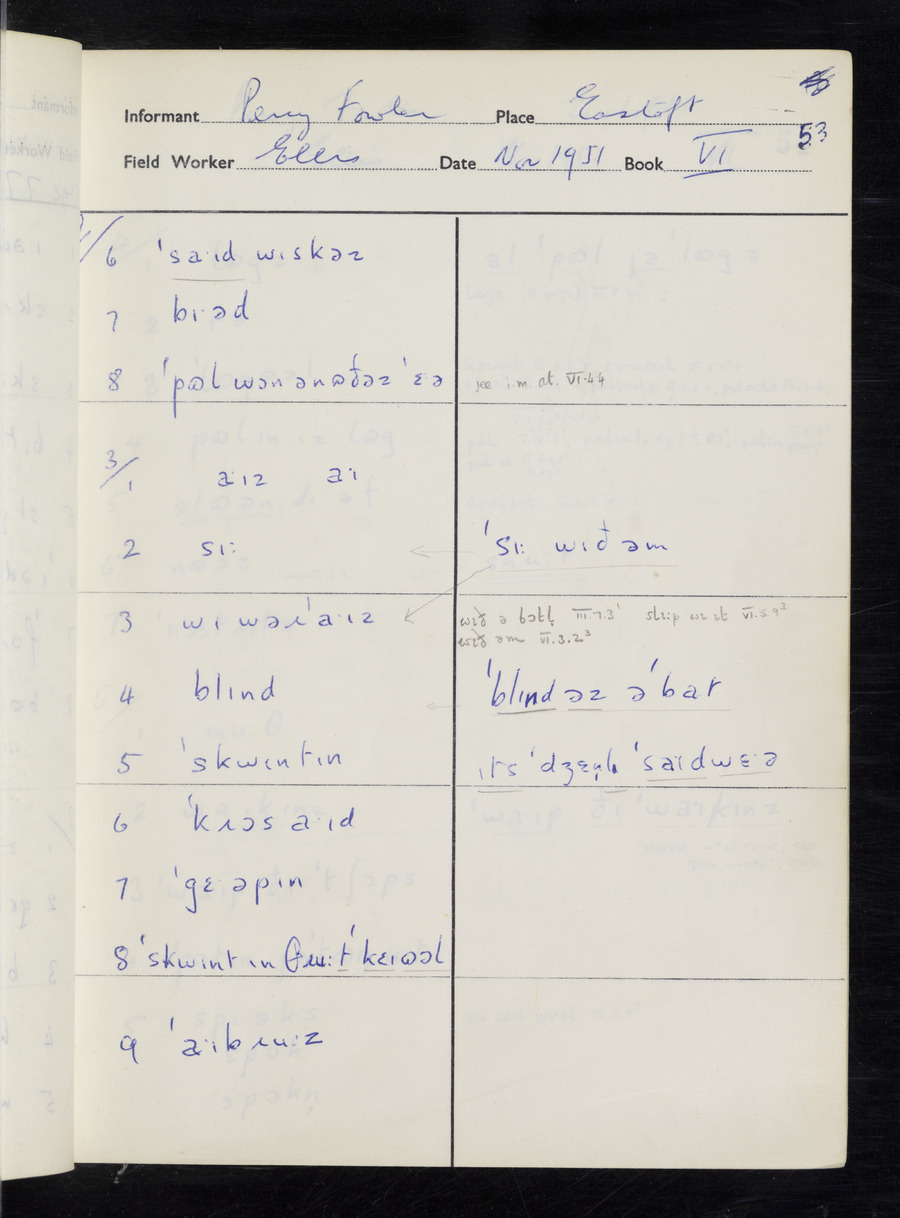 Informant Percy Fowler Place Eastoft
53
Field Worker Ellis Date Nov 1951 Book VI
6 ˈsaɪd wɪskəz
7 bɪəd
8 ˈpɷl wən ənɷðəz ˈɛə see i.m. at. VI.4.4
3/
1 aːɪz aːɪ
2 sɪː ˈsɪː wɪð əm
3 wɪ wəɹˈaːɪz wɪð ə bɔtl̩ III.7.3¹ stɹɪp wɪ ɪt VI.5.9³
wɪð əm VI.3.2³
4 blɪnd ˈblɪnd əz ə ˈbat
5 ˈskwɪntɪn ɪts ˈdʒɛn̩lɪ ˈsaɪdwɛə
6 ˈkɹɔs aːɪd
7 ˈgɛəpɪn
8 ˈskwɪnt ɪn θɹuːt ˈkɛɪɷəl
9 ˈaːɪbɹuːz